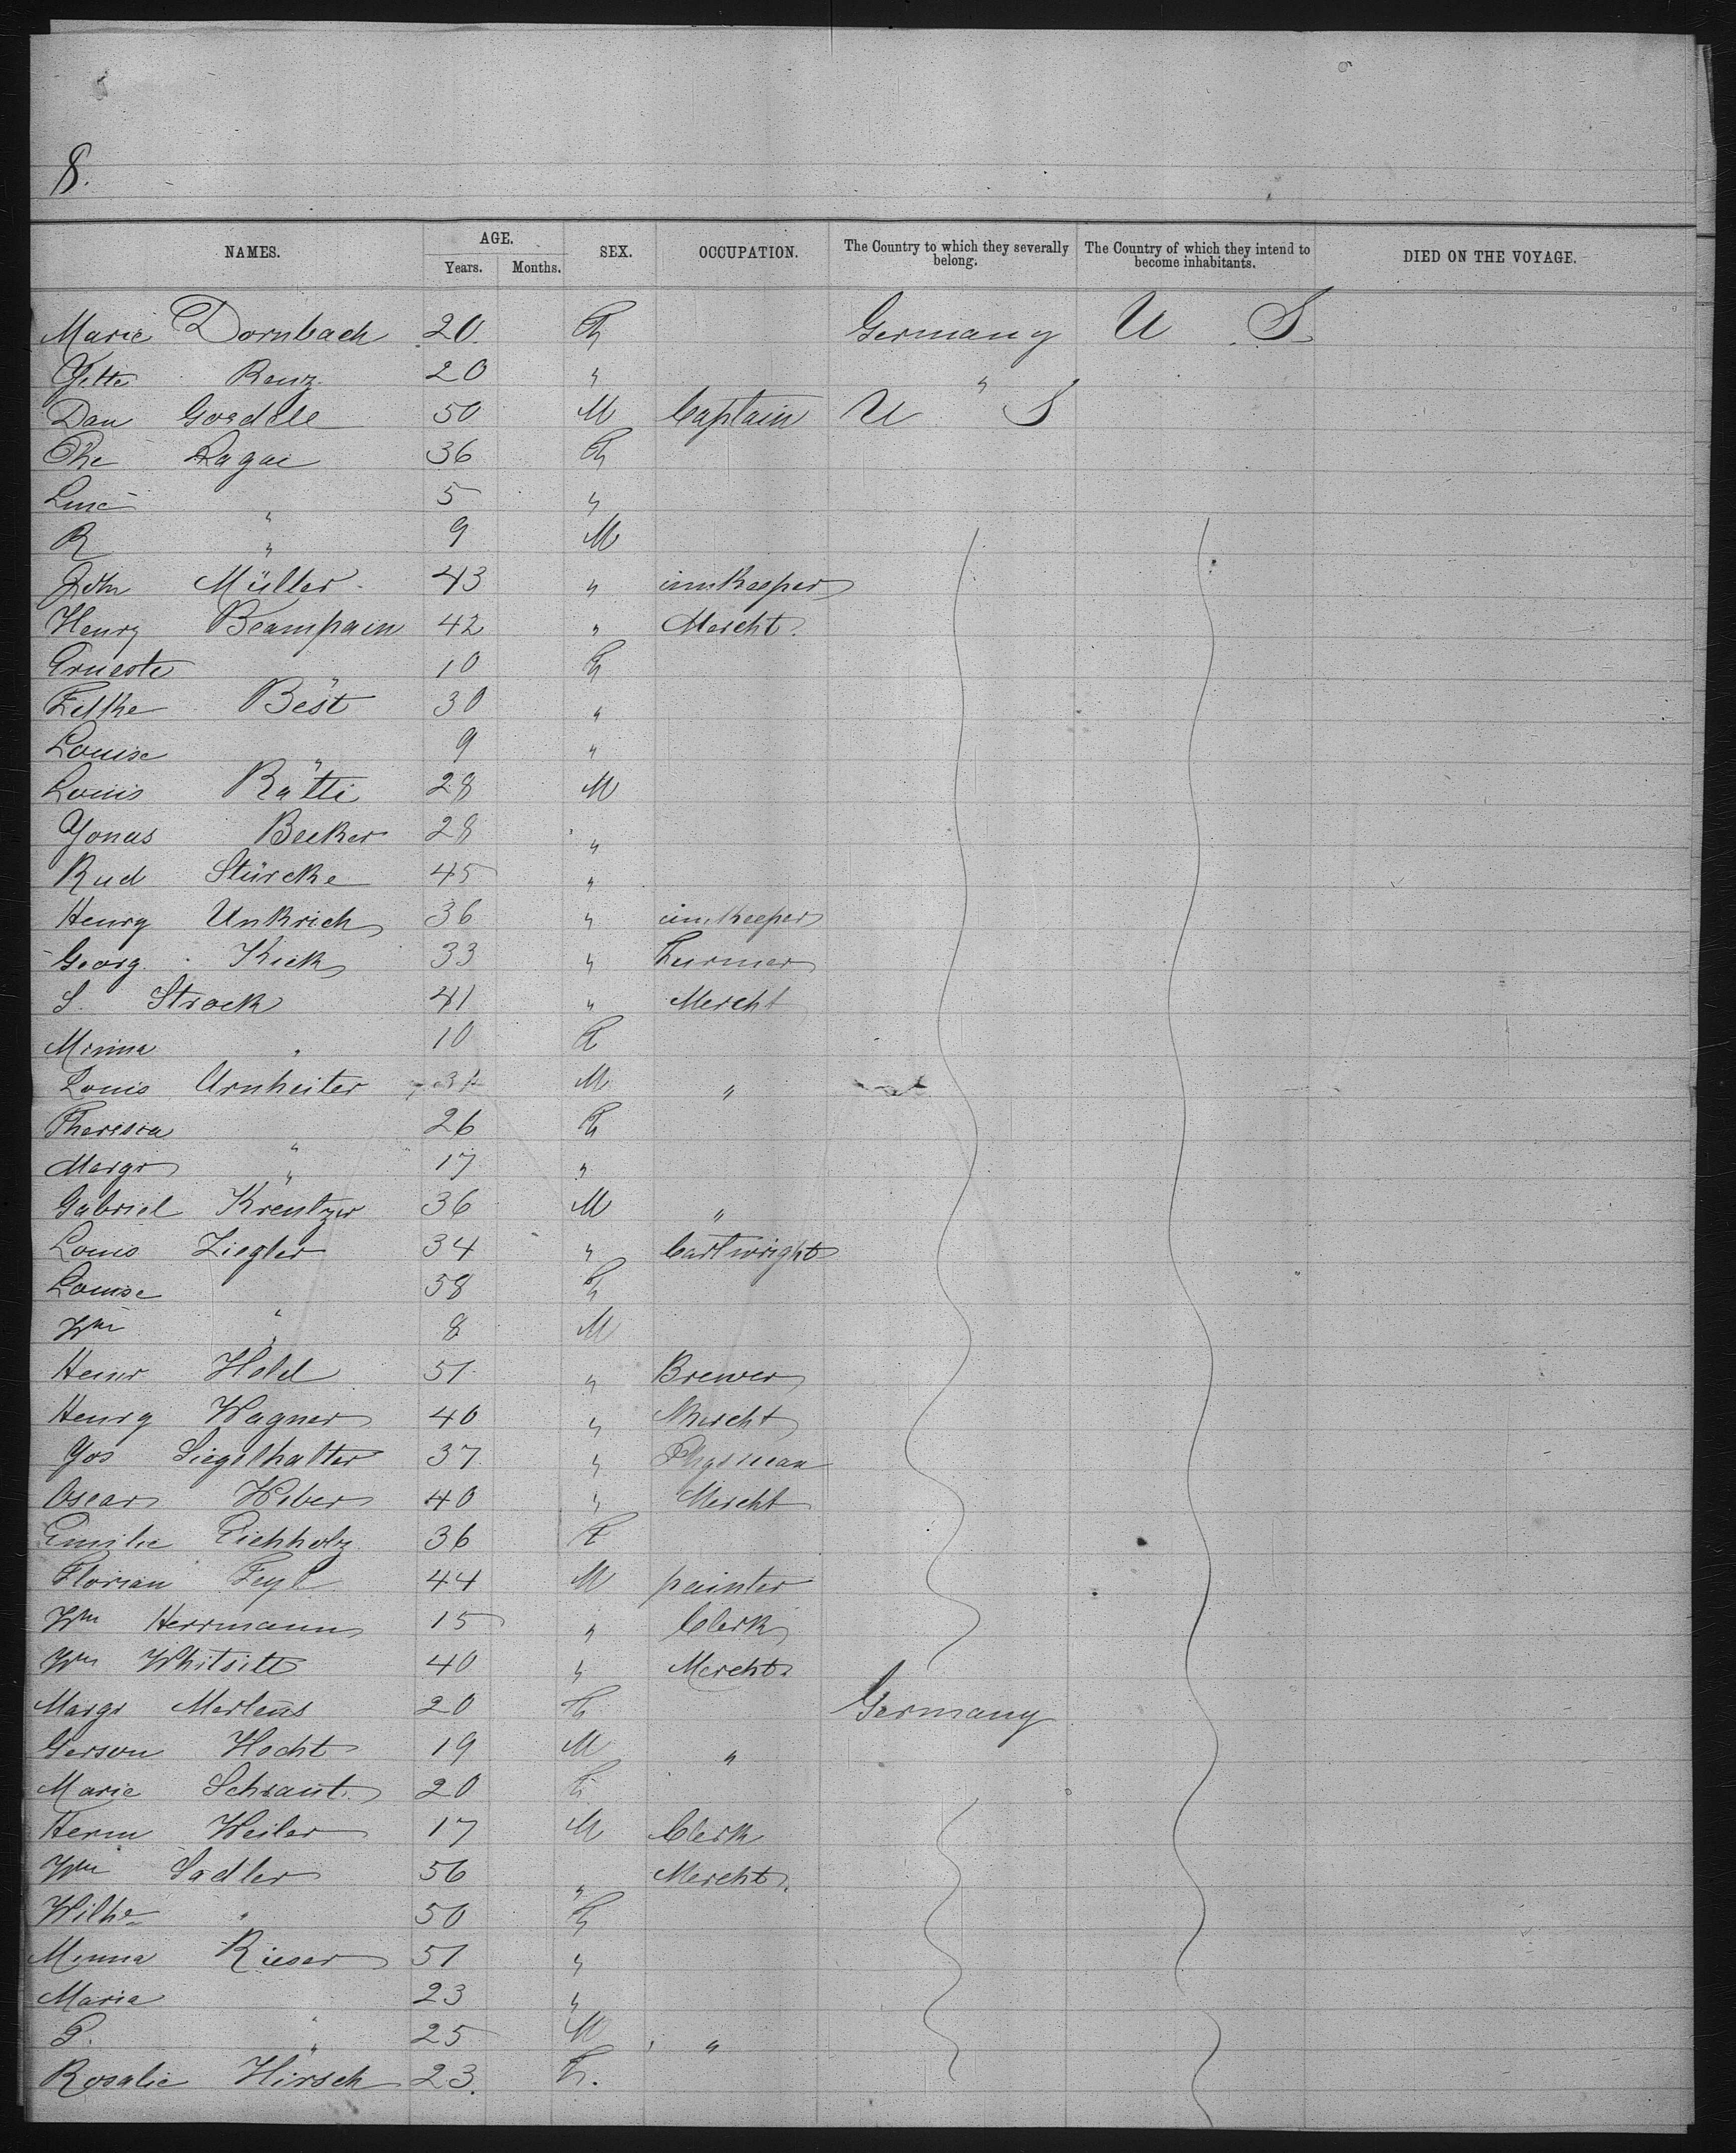 8.
NAMES. AGE. SEX. OCCUPATION. The Country to which they severally belong. The Country of which they intend to become inhabitants. DIED ON THE VOYAGE.
Years. Months.
Marie Dornbach 20. F Germany U S
Yette Renz 20 " "
Dan Gordele 50 M Captain U S
Che Ragae 36 F
Line " 5 "
R " 9 M
John Müller 43 " innkeeper
Henry Beampain 42 " Mercht.
Erneste " 10 F
Best 30 "
Louise " 9 "
Louis Rätti 28 M
Yonas Becker 28 "
Rud Stürcke 45 "
Henry Unkrich 36 " innkeeper
Georg Kick 33 " Furmer
S. Strock 41 " Mercht
Minna " 10 F
Louis Arnheiter M "
Theresia " 26 F
Margr " 17 "
Gabriel Kreutzer 36 M "
Louis Ziegler 34 " Cartwright
Louise " 58 F
Wm " 8 M
Heinr Hold 51 " Brewer
Henry Wagner 40 " Mercht
Jos Siegelhalter 37 " Physician
Oscar Weber 40 " Mercht
Emilie Eichholz 36 F
Florian Feyl 44 M painter
Wm Herrmann 15 " Clerk
Wm Whitsitt 40 " Mercht.
Margr Mertens 20 F Germany
Gerson Hocht 19 M "
Marie Schraut 20 F
Herm Weiler 17 M Clerk
Wm Sadler 56 " Mercht.
Wilhe " 50 F
Minna Rieser 51 "
Maria " 23 "
" 25 M "
Rosalie Hirsch 23. F.